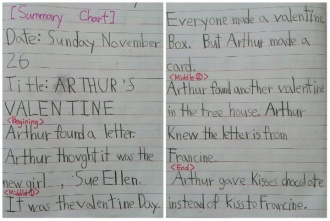 [Summary Chart]
Date: Sunday November
26
Title: ARTHUR'S
VALENTINE
<Begining>
Arthur found a letter.
Arthur thought it was the
new girl , Sue Ellen.
<Middle①>
It was the valentine Day.
Everyone made a valentine
Box. But Arthur made a
card.
<Middle②>
Arthur found another valentine
in the tree house. Arthur
Knew the letter is from
Francine.
<End>
Arthur gave Kisses chocolate
instead of kiss to Francine.